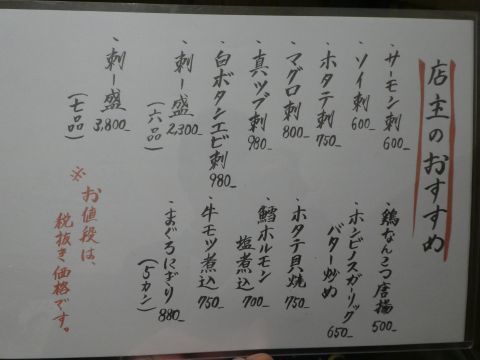 店主のおすすめ
・サーモン刺 600-
・ソイ刺 600-
・ホタテ刺 750-
・マグロ刺 800-
・真ツブ刺 980-
・白ボタンエビ刺 980-
・刺し盛 2,300-
(六品)
・刺し盛 3,800-
(七品)
・鶏なんこつ唐揚 500-
・ホンビノスガーリック
バター炒め 650-
・ホタテ貝焼 750-
・鱈ホルモン
塩煮込 700-
・牛モツ煮込 750-
・まぐろにぎり 880-
(5カン)
※お値段は、
税抜き価格です。